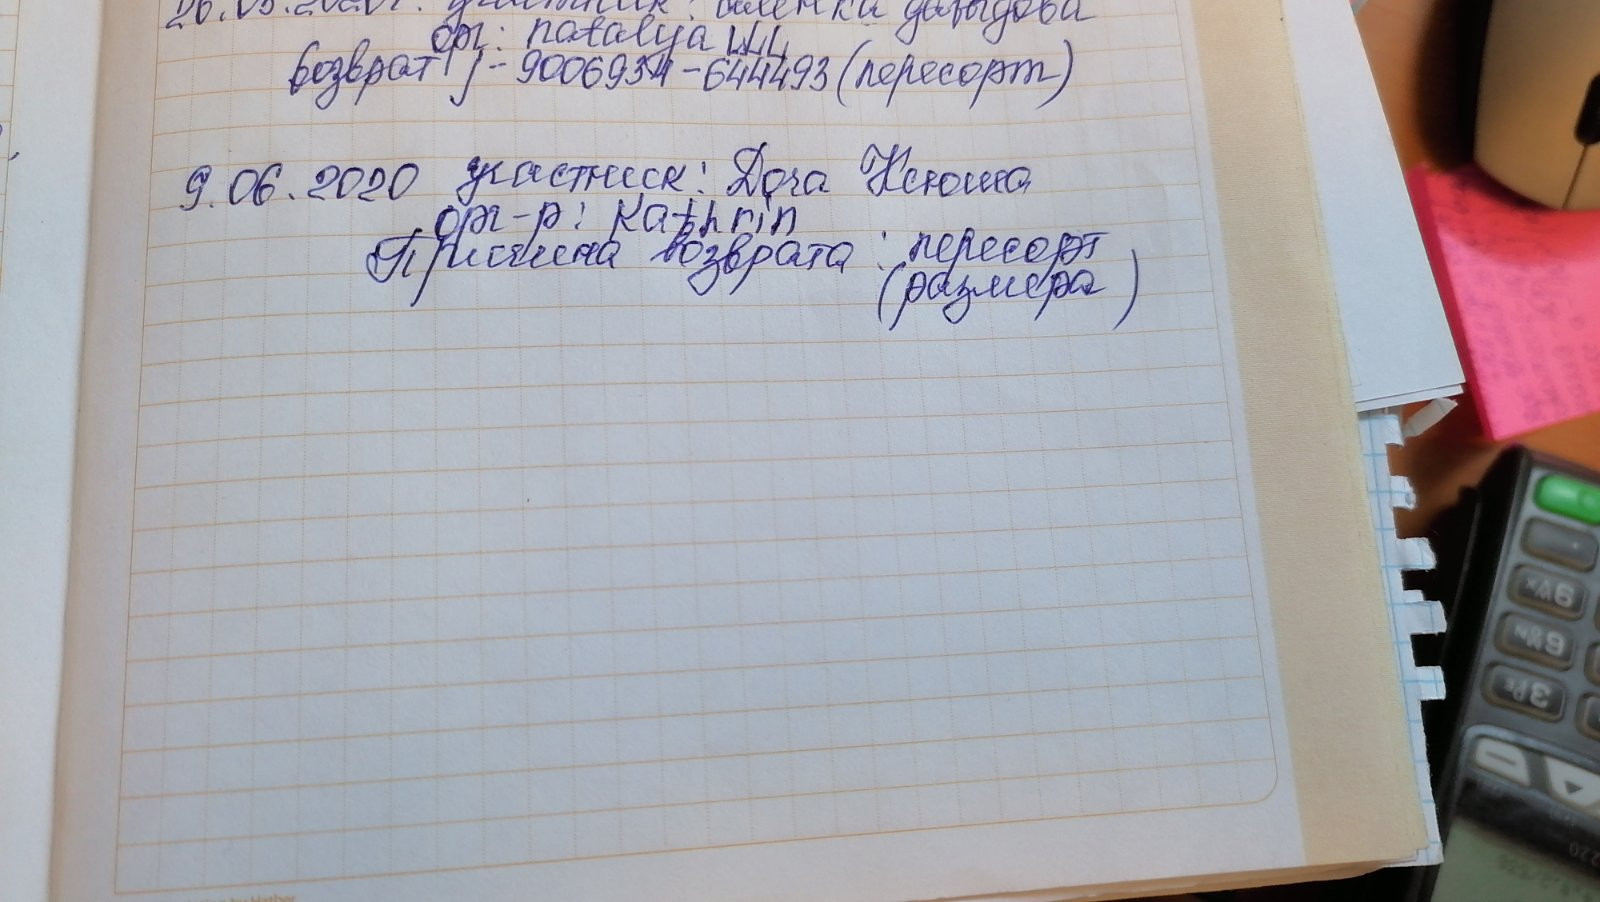 26.05.2020г. участник: Аленка Давыдова
орг: natalya
возврат j-9006934-644493 (пересорт)
9.06.2020 участник: Доча Ксюша
орг-р: Kathrin
Причина возврата: пересорт
(размера)